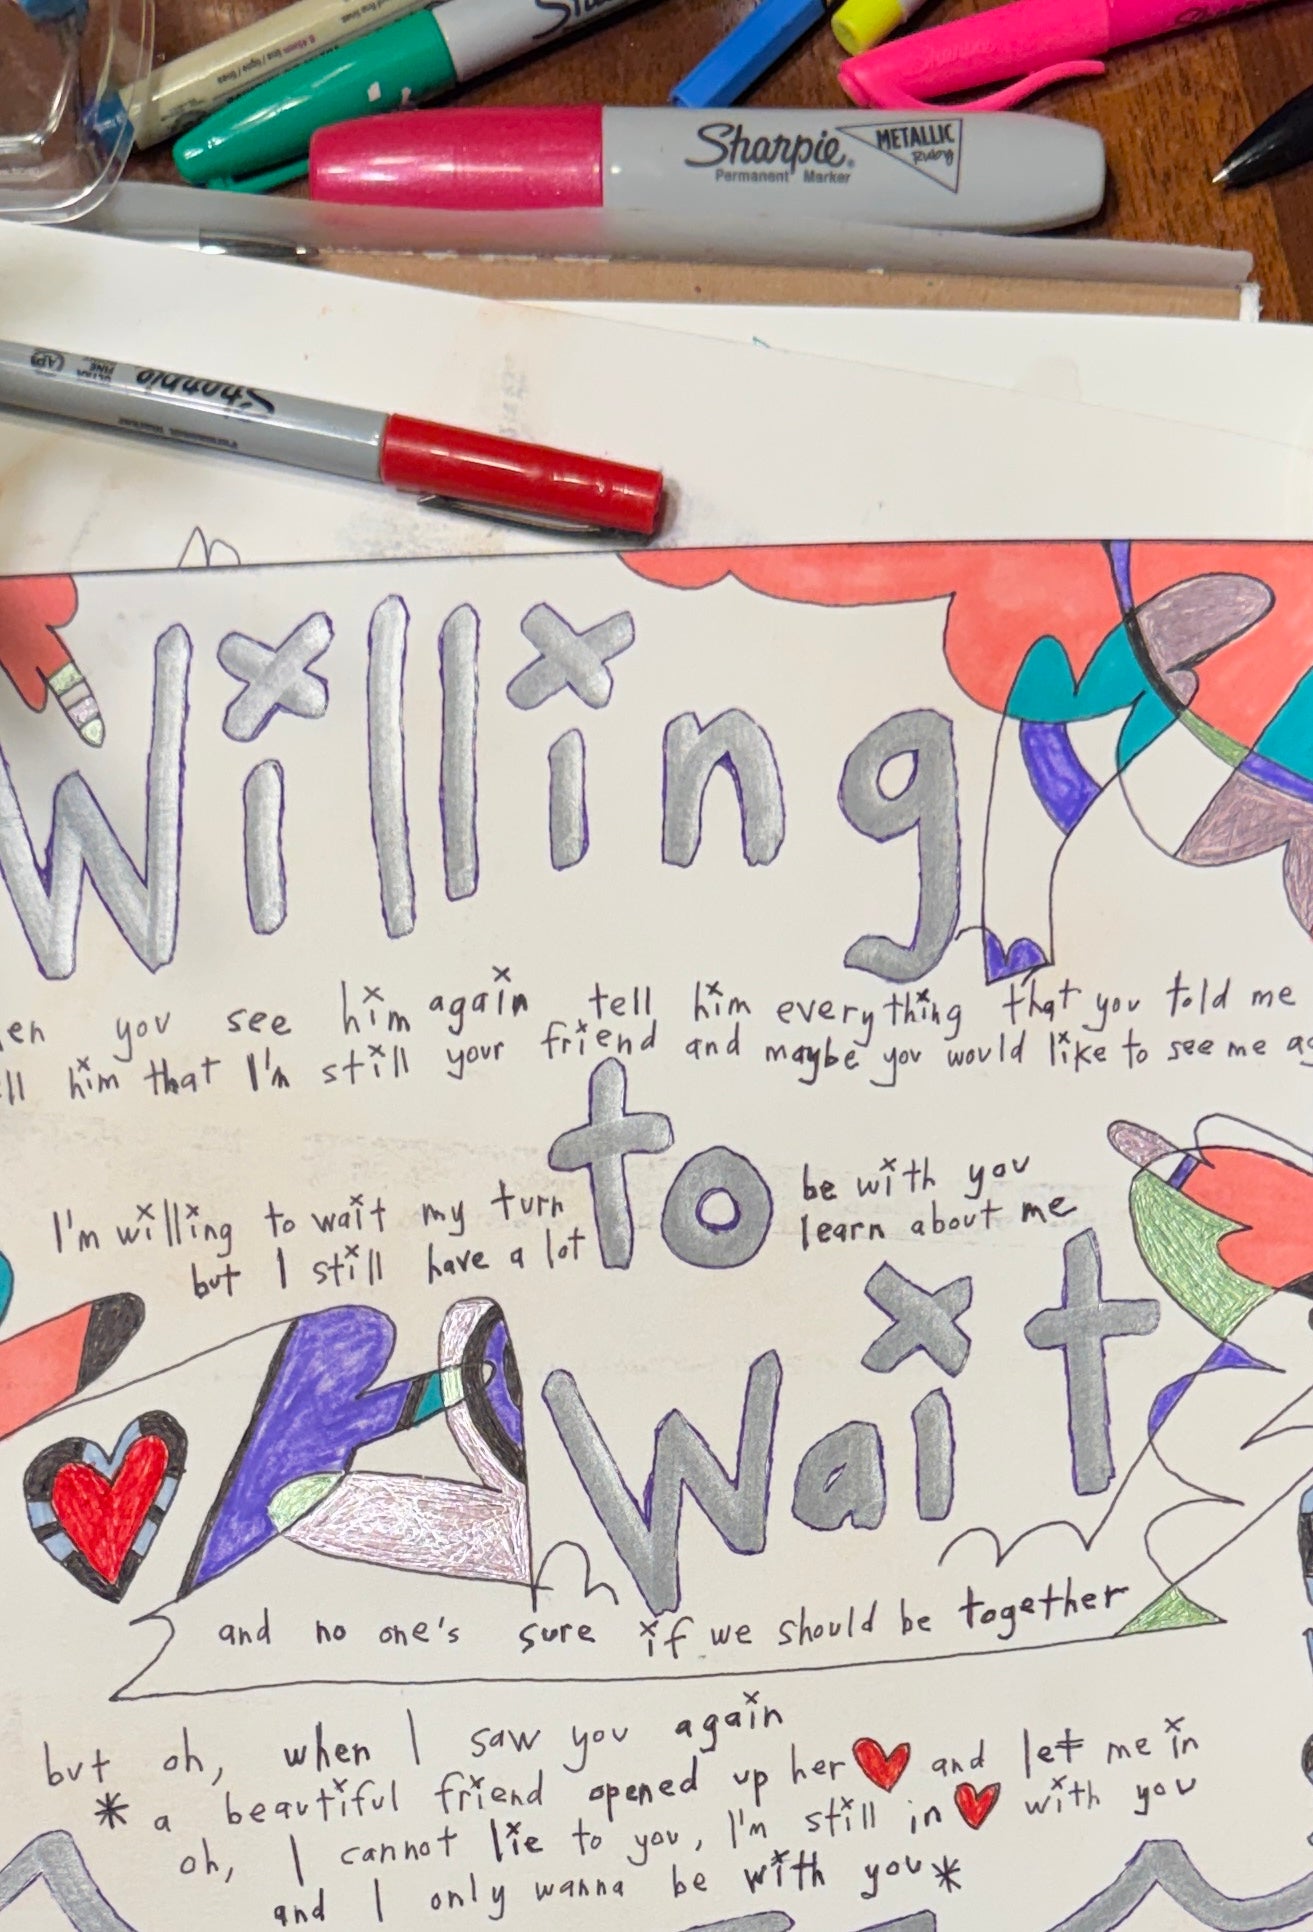 Sharpie
Sharpie®
Permanent Marker
METALLIC
Ruby
Sharpie
Permanent Marker
Willing
you see him again tell him everything that you told me
him that I'm still your friend and maybe you would like to see me
to
I'm willing to wait my turn be with you
but I still have a lot learn about me
Wait
and no one's sure if we should be together
but oh, when I saw you again
* a beautiful friend opened up her ♥ and let me in
oh, I cannot lie to you, I'm still in ♥ with you
and I only wanna be with you *